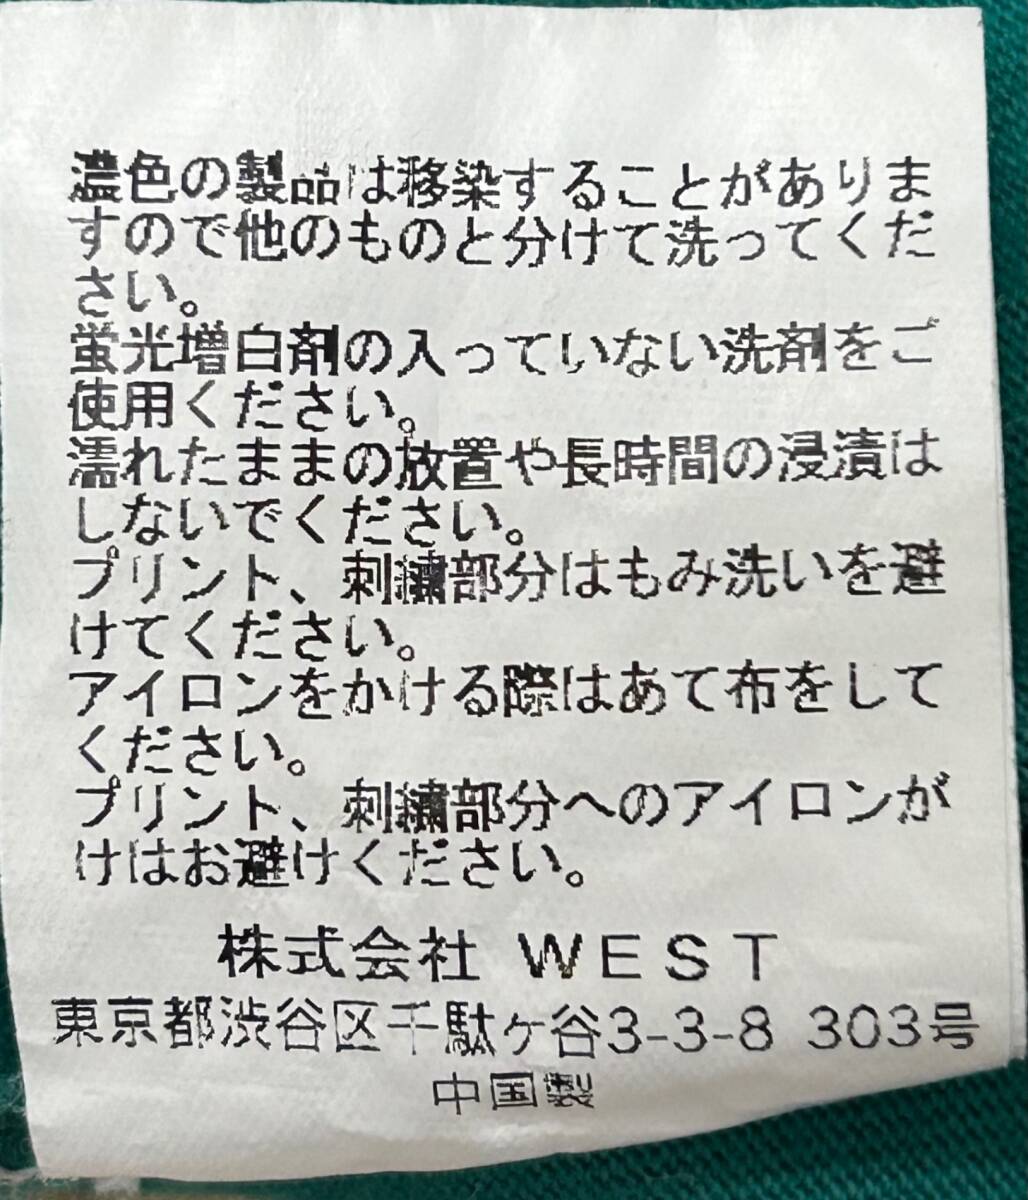 濃色の製品は移染することがありま
すので他のものと分けて洗ってくだ
さい。
蛍光増白剤の入っていない洗剤をご
使用ください。
濡れたままの放置や長時間の浸漬は
しないでください。
プリント、刺繍部分はもみ洗いを避
けてください。
アイロンをかける際はあて布をして
ください。
プリント、刺繍部分へのアイロンが
けはお避けください。
株式会社 WEST
東京都渋谷区千駄ヶ谷3-3-8 303号
中国製